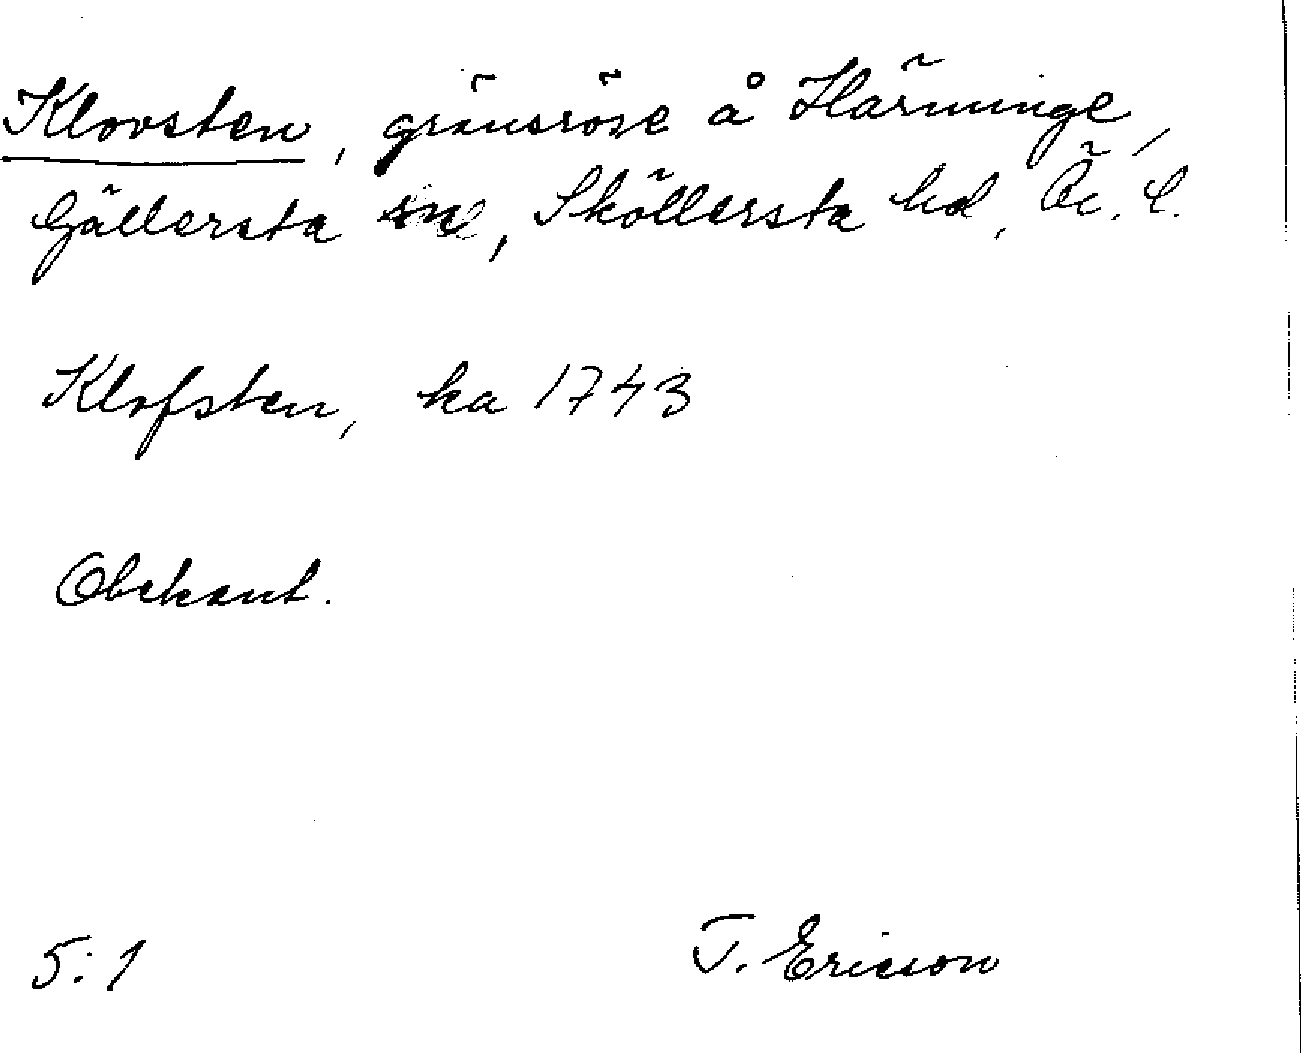 Klovsten, gränsröse å Härminge,
Gällersta sn, Sköllersta hd, Ör. l.
Klofsten, ka 1743
Obekant.
5:1 T. Ericson